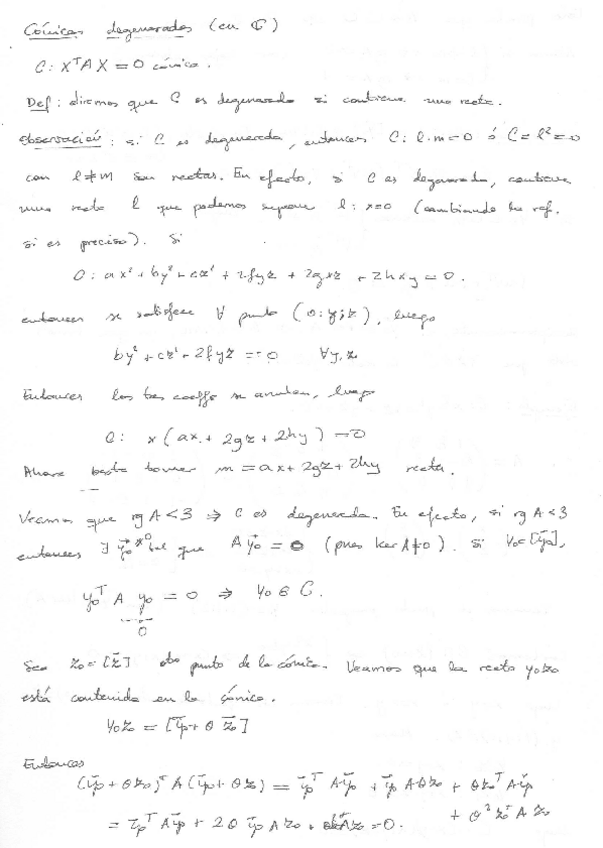 Cónicas degeneradas (en ℂ)
C: XᵀAX = 0 cónica.
Def: diremos que C es degenerada si contiene una recta.
Observación: si C es degenerada, entonces C: l·m=0 ó C=l²=0
con l≠m son rectas. En efecto, si C es degenerada, contiene
una recta l que podemos suponer l: x=0 (cambiando la ref.
si es preciso). Si
C: ax²+by²+cz²+2fyz+2gxz+2hxy=0.
entonces se satisface ∀ punto (0:y:z), luego
by²+cz²+2fyz=0 ∀y,z
Entonces los tres coeffs se anulan, luego
C: x(ax+2gz+2hy)=0
Ahora basta tomar m=ax+2gz+2hy recta.
Veamos que rg A<3 ⇒ C es degenerada. En efecto, si rg A<3
entonces ∃ ȳ₀≠0 tal que Aȳ₀=0 (pues ker A≠0). Si y₀=[ȳ₀],
y₀ᵀ A y₀ = 0 ⇒ y₀ ∈ C.
0
Sea z₀=[z̄] otro punto de la cónica. Veamos que la recta y₀z₀
está contenida en la cónica.
y₀z₀ = [ȳ₀+θz̄₀]
Entonces
(ȳ₀+θz₀)ᵀA(ȳ₀+θz) = ȳ₀ᵀAȳ₀ + ȳ₀Aθz₀ + θz₀ᵀAȳ₀
+ θ²z₀ᵀAz₀
= ȳ₀ᵀAȳ₀ + 2θȳ₀Az₀ + Az₀=0.